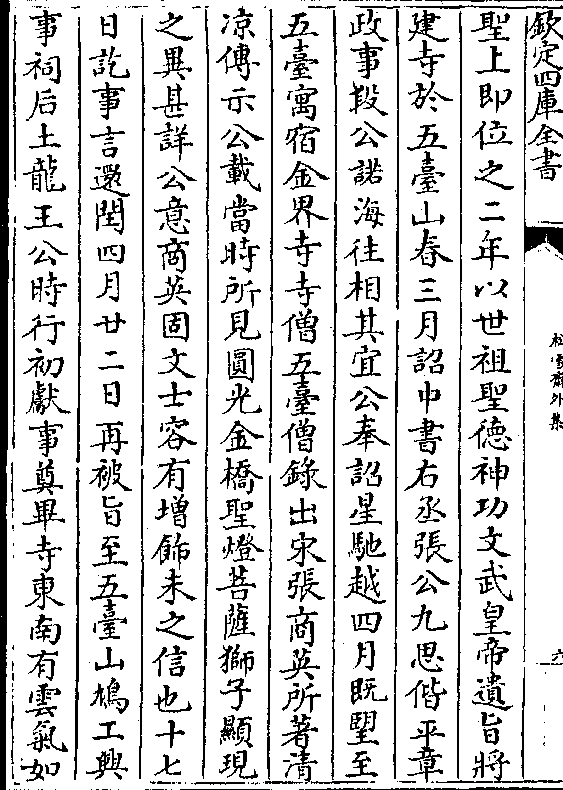 欽定四庫全書
松雪齋外集
六
聖上即位之二年以世祖聖德神功文武皇帝遺旨將
建寺於五臺山春三月詔中書右丞張公九思偕平章
政事段公諾海往相其宜公奉詔星馳越四月既望至
五臺寓宿金界寺寺僧五臺僧錄出宋張商英所著清
凉傳示公載當時所見圓光金橋聖燈菩薩獅子顯現
之異甚詳公意商英固文士容有增飾未之信也十七
日訖事言還閏四月廿二日再被旨至五臺山鳩工興
事祠后土龍王公時行初獻事奠畢寺東南有雲氣如